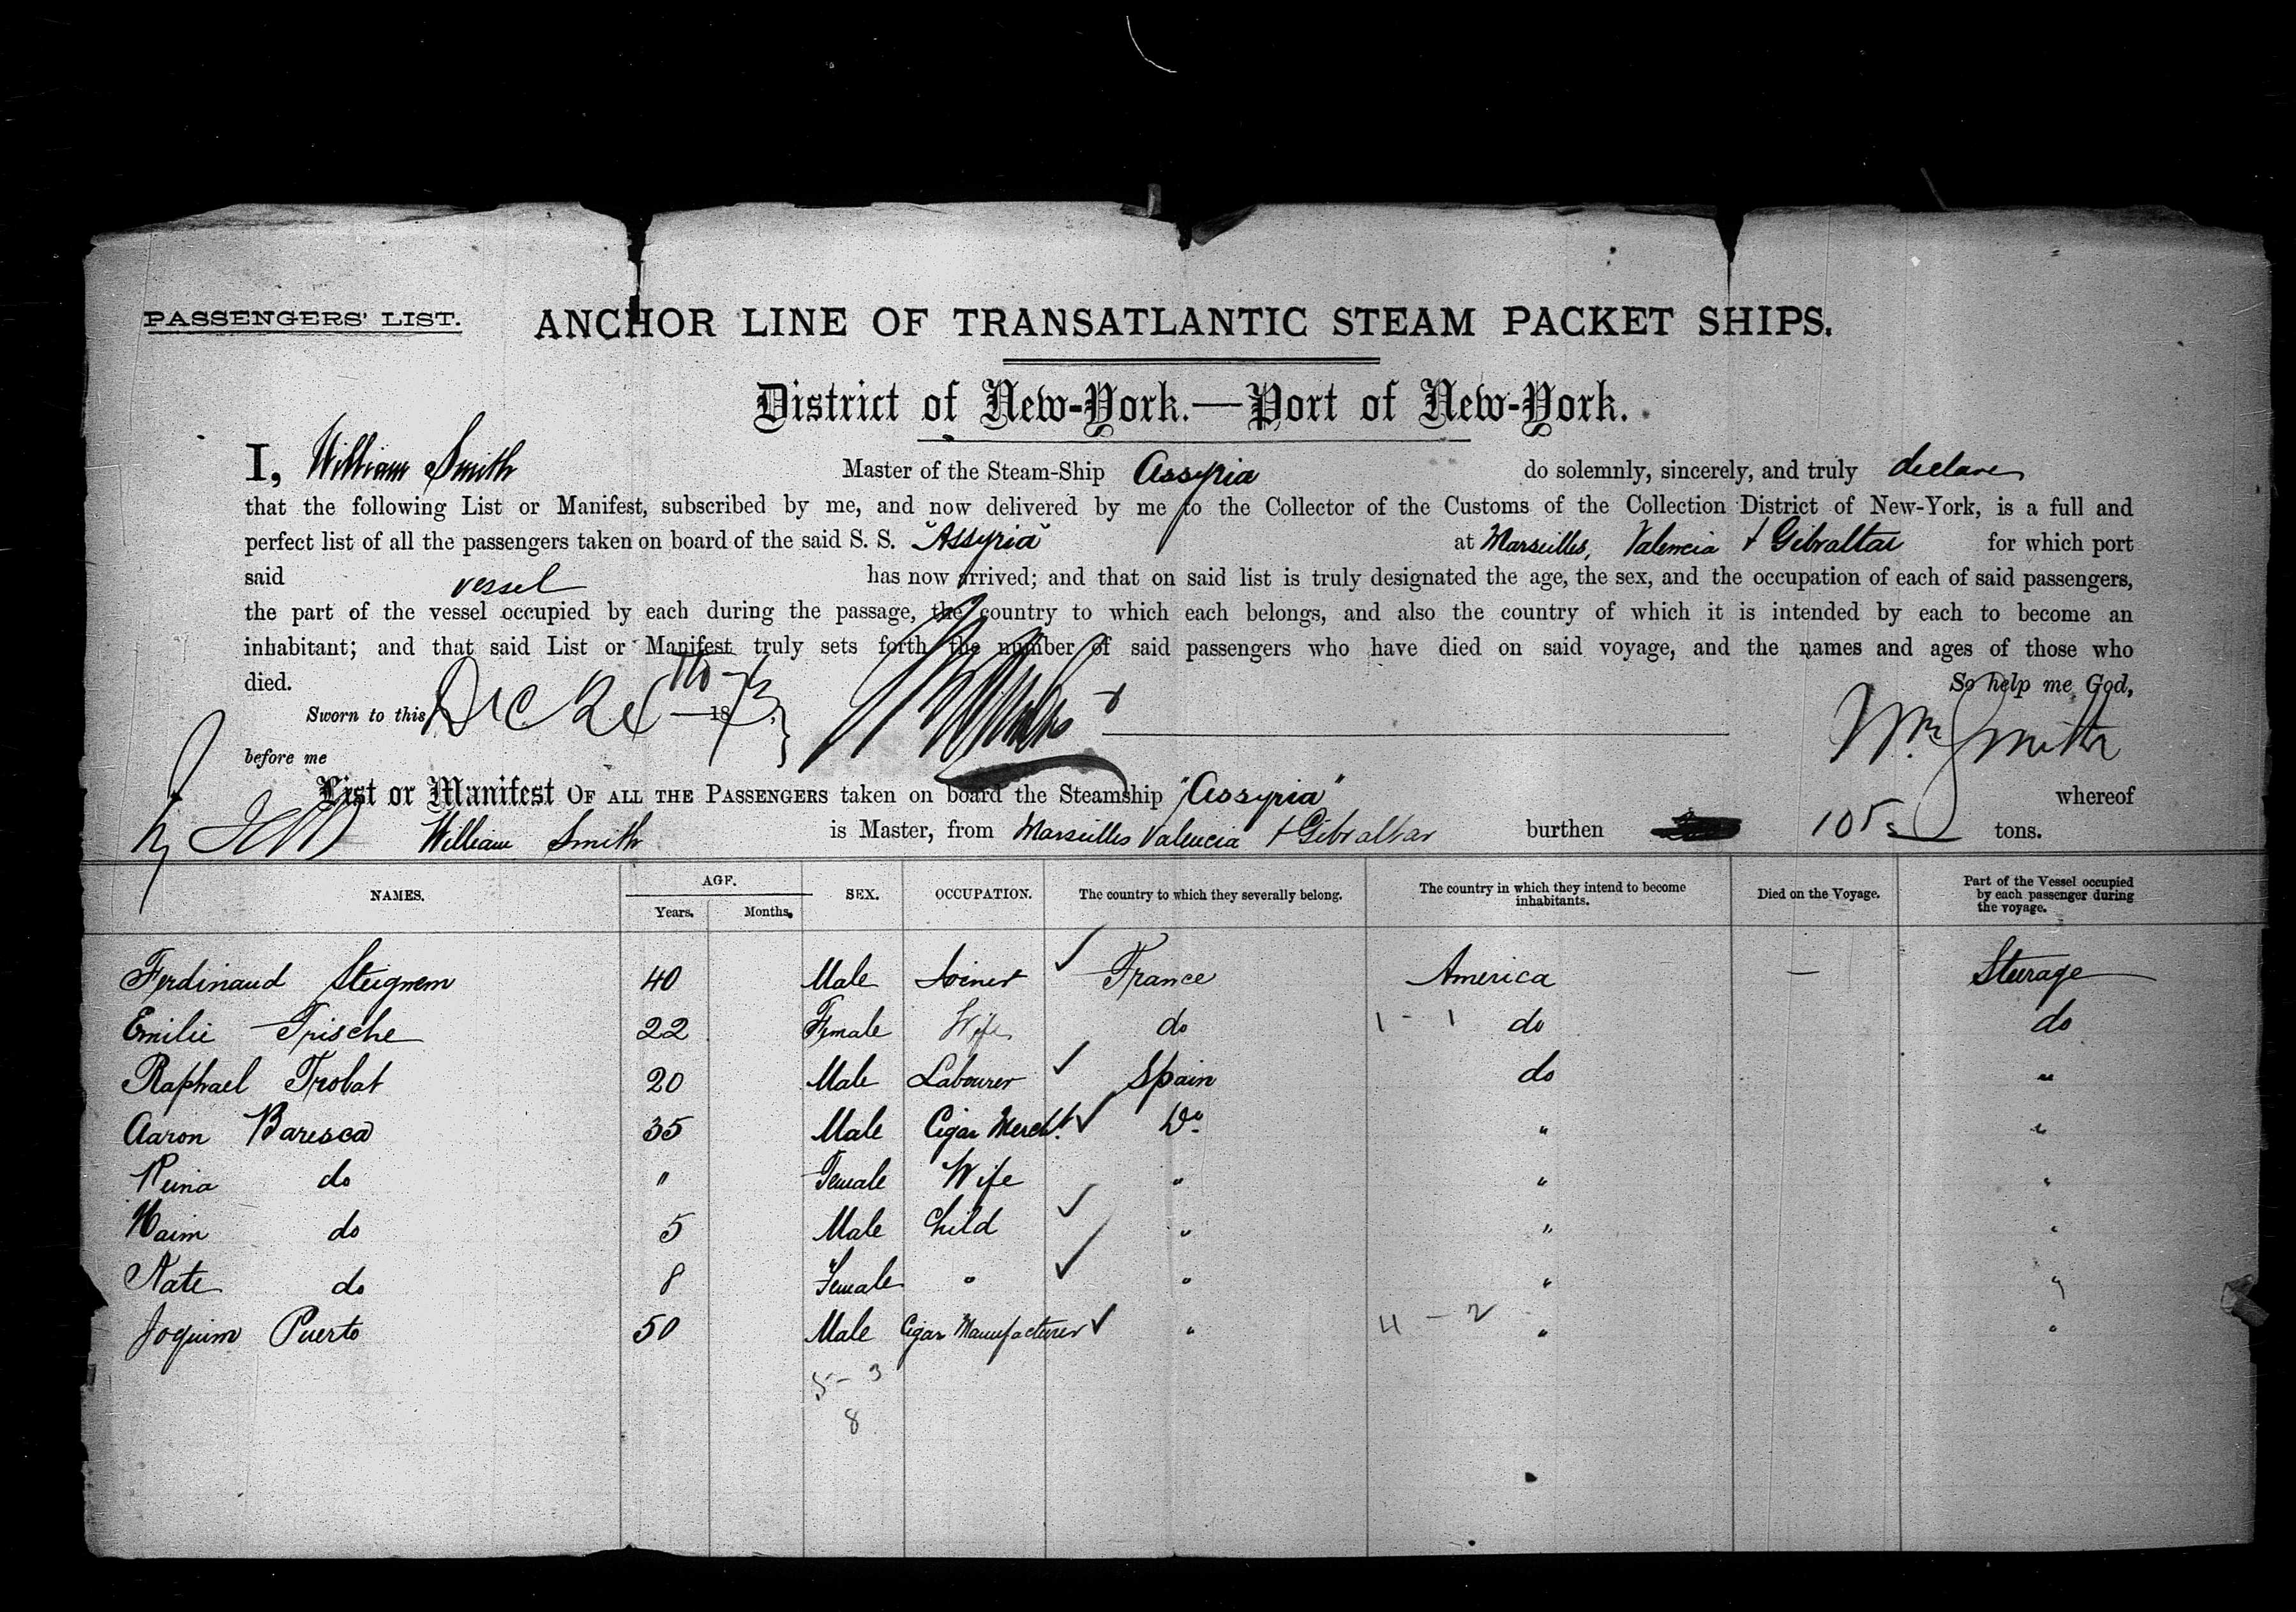 PASSENGERS' LIST.
ANCHOR LINE OF TRANSATLANTIC STEAM PACKET SHIPS.
District of New-York.—Port of New-York.
I, William Smith Master of the Steam-Ship Assyria do solemnly, sincerely, and truly declare
that the following List or Manifest, subscribed by me, and now delivered by me to the Collector of the Customs of the Collection District of New-York, is a full and
perfect list of all the passengers taken on board of the said S. S. "Assyria" at Marseilles, Valencia & Gibraltar for which port
said vessel has now arrived; and that on said list is truly designated the age, the sex, and the occupation of each of said passengers,
the part of the vessel occupied by each during the passage, the country to which each belongs, and also the country of which it is intended by each to become an
inhabitant; and that said List or Manifest truly sets forth the number of said passengers who have died on said voyage, and the names and ages of those who
died. So help me God,
Sworn to this Dec 18 73 Wm Smith
before me
List or Manifest OF ALL THE PASSENGERS taken on board the Steamship "Assyria" whereof
William Smith is Master, from Marseilles Valencia & Gibraltar burthen tons.
NAMES. AGE. Years. Months. SEX. OCCUPATION. The country to which they severally belong. The country in which they intend to become inhabitants. Died on the Voyage. Part of the Vessel occupied by each passenger during the voyage.
Ferdinand 40 Male Joiner ✓ France America — Steerage
Emilie Trische 22 Female Wife do 1 - 1 do do
Raphael Trobat 20 Male Labourer ✓ Spain do "
Aaron Baresca 35 Male Cigar Mercht. ✓ Do " "
Reina do " Female Wife " " "
Haim do 5 Male Child ✓ " " "
Nate do 8 Female " ✓ " " "
Joquim Puerto 50 Male Cigar Manufacturer ✓ " 4 - 2 " "
5 - 3
8